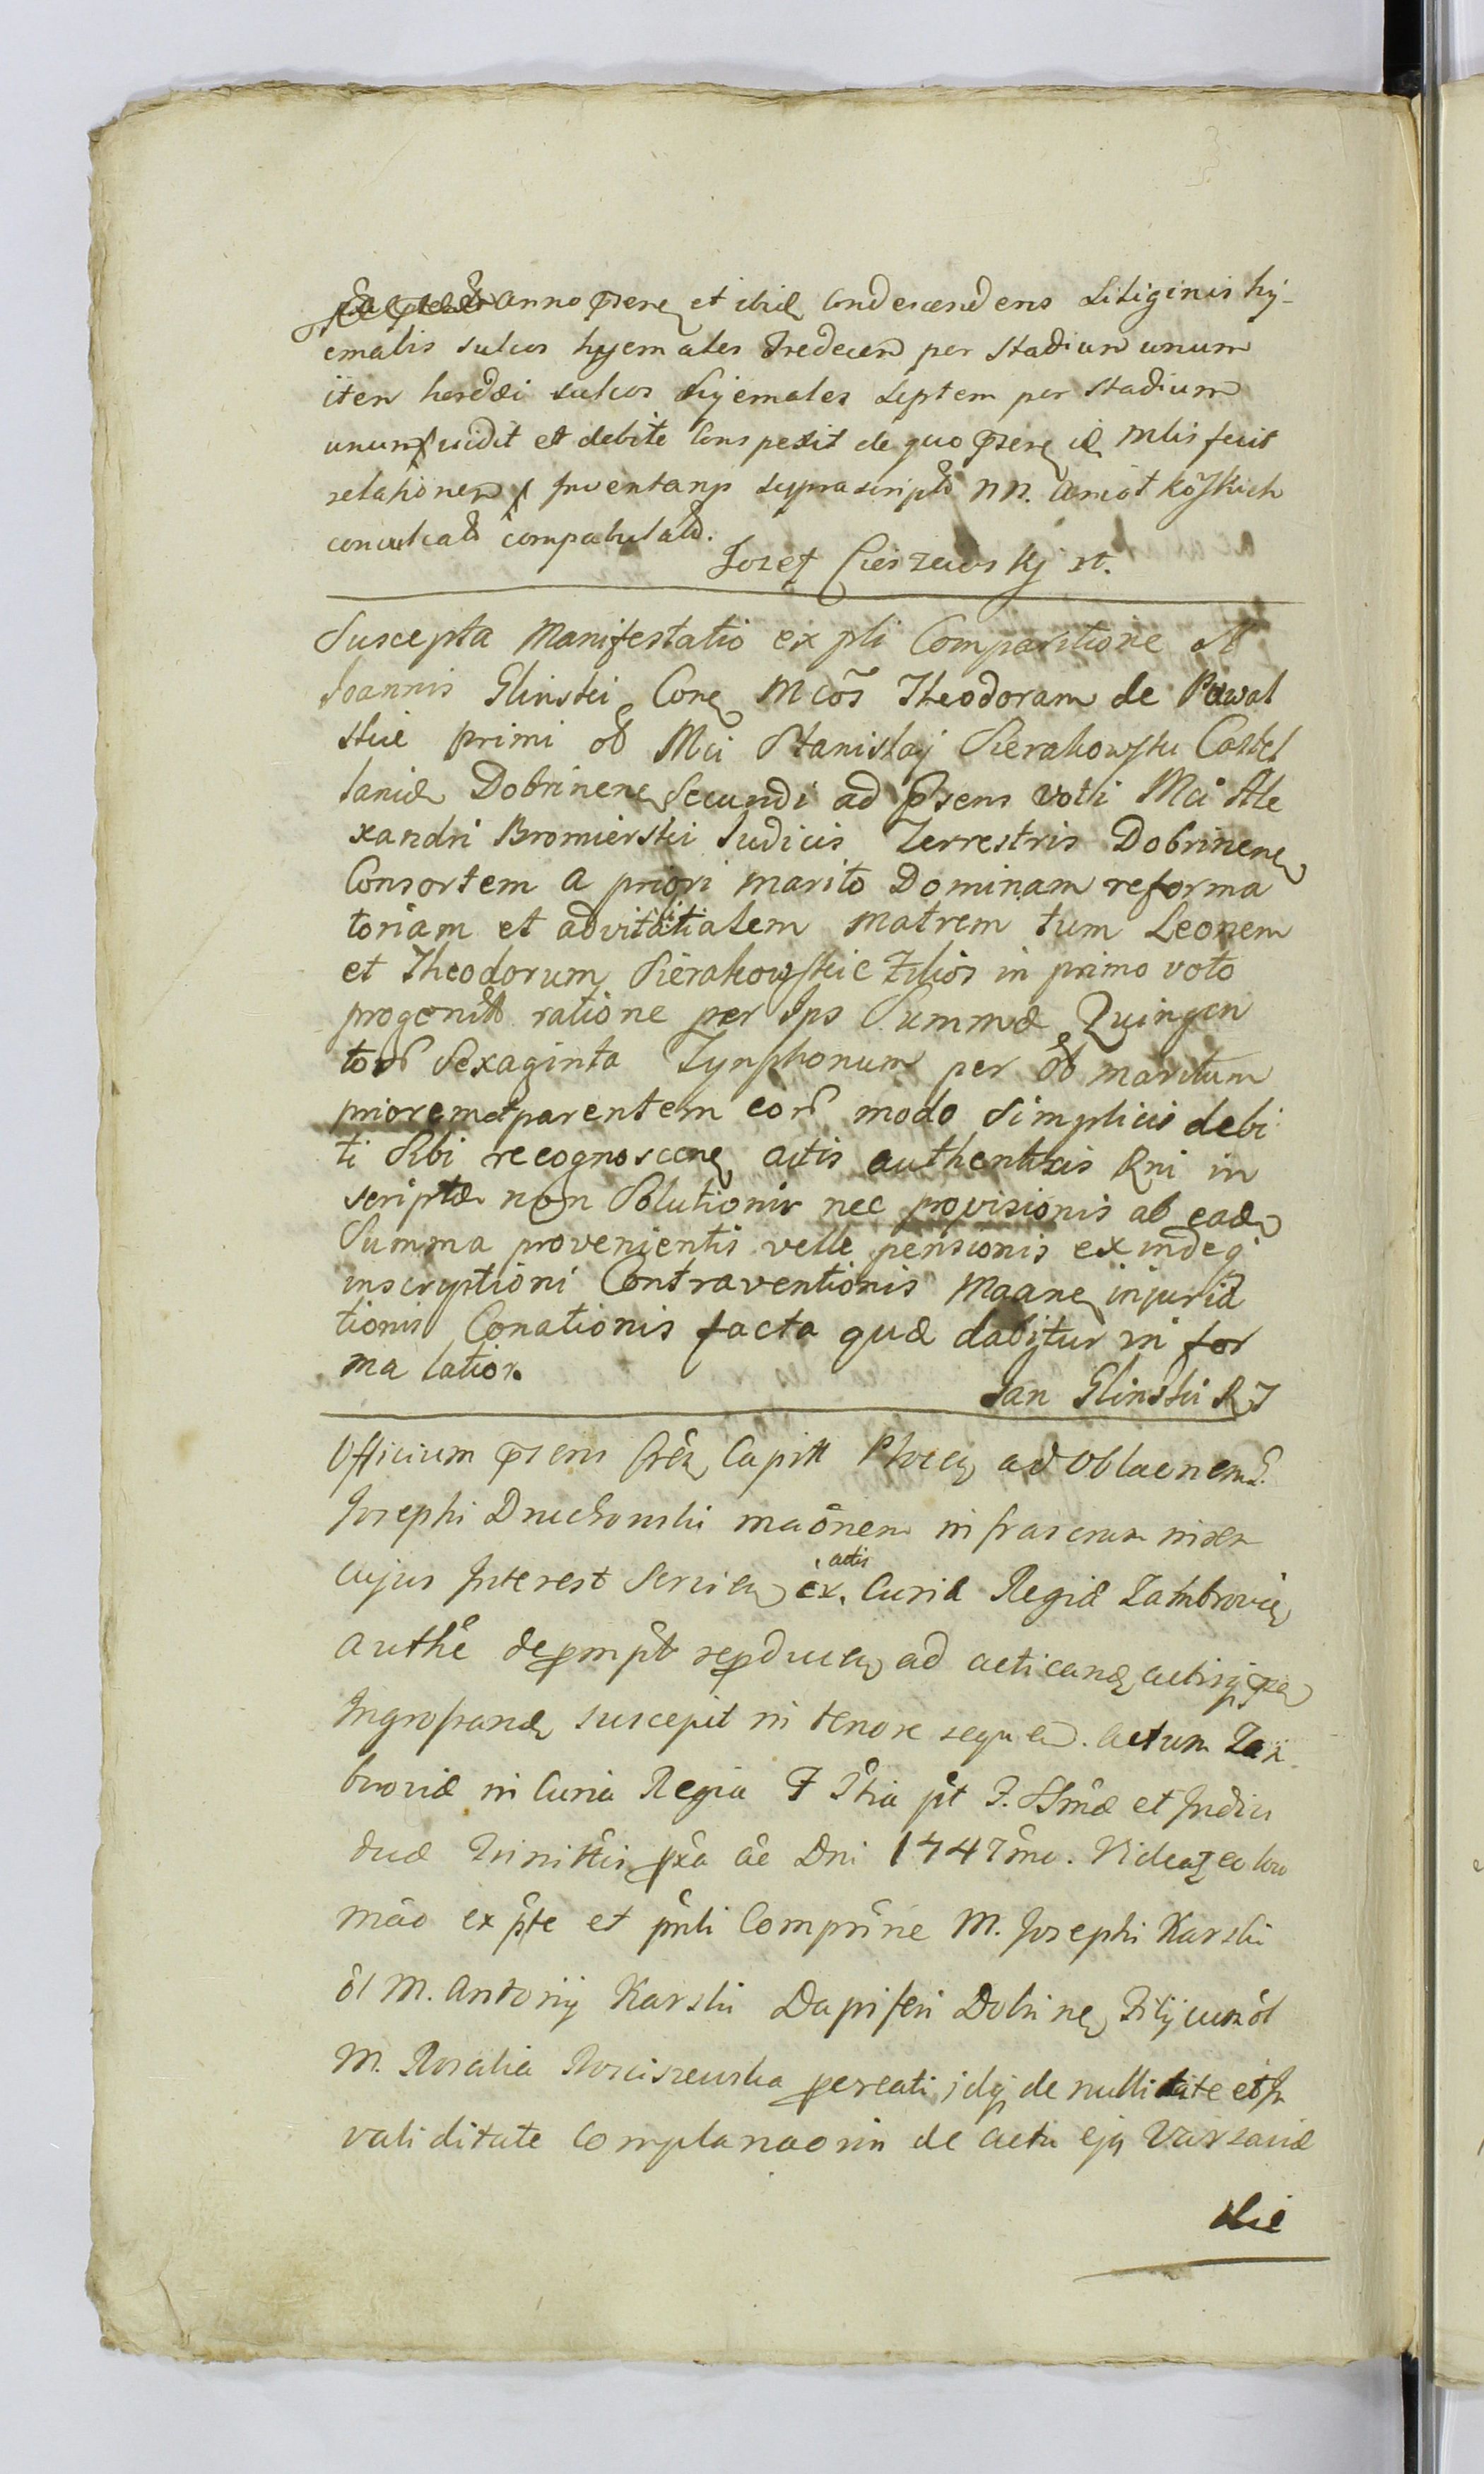 anno psene et ibid Condescendens Siliginis hy-
emalis sulcos hyemales Tredecem per Stadium unum
item hordei sulcos hyemales Septem per Stadium
unum vidit et debite Conspexit de quo psene id Mlis fecit
relationem Inventarijs suprascripto NN.
conculcato compabulato.
Jozef Cieszewskj
Suscepta Manifestatio ex pli Comparitione M
Joannis Glinski Cone Mcos Theodoram de Pawal
skie primi ob Mci Stanislaj Sierakowski Castel
lanidæ Dobrinene Secundi ad Psens voti Mci Ale
xandri Bromierski Judicis Terrestris Dobrinene
Consortem a priori marito Dominam reforma
toriam et advitalitialem matrem tum Leonem
et Theodorum Sierakowskie Filios in primo voto
progenitos ratione per Ips Summæ Quingen
tor Sexaginta Tynphonum per ob maritum
priorem et parentem eor modo Simplicis debi
ti Sibi recognoscene actis authenticis Rni in
scriptæ non Solutionis nec provisionis ab eade
Summa provenientis velle pensionis exindeq
inscryptioni Contraventionis Maane injuria
tionis Conationis facta quæ dabitur in for
ma latior.
Jan Glinski R J
Officium psens Capitt Plocen ad Oblaonem G.
Josephi Druchowski maonem infrascram inser
cujus Interest Servien ex actis Curiæ Regiæ Zambrovien
authe depmpt repducen ad acticand actisq psen
Ingrossand suscepit in tenore sequen. Actum Zam
broviæ in Curia Regia F Stia pt F. SSmæ et Indivi
duæ Trinittis pxa ao Dni 1747mo. Videat ea loco
mao ex pte et pnli Comprine M. Josephi Karski
ol M. Antonij Karski Dapiferi Dobrinen Filij cum ol
M. Rosalia Rosciszewska pcreati, idq de nullitate et In
validitate Complanaonis de actu ejq Varsaviæ
die